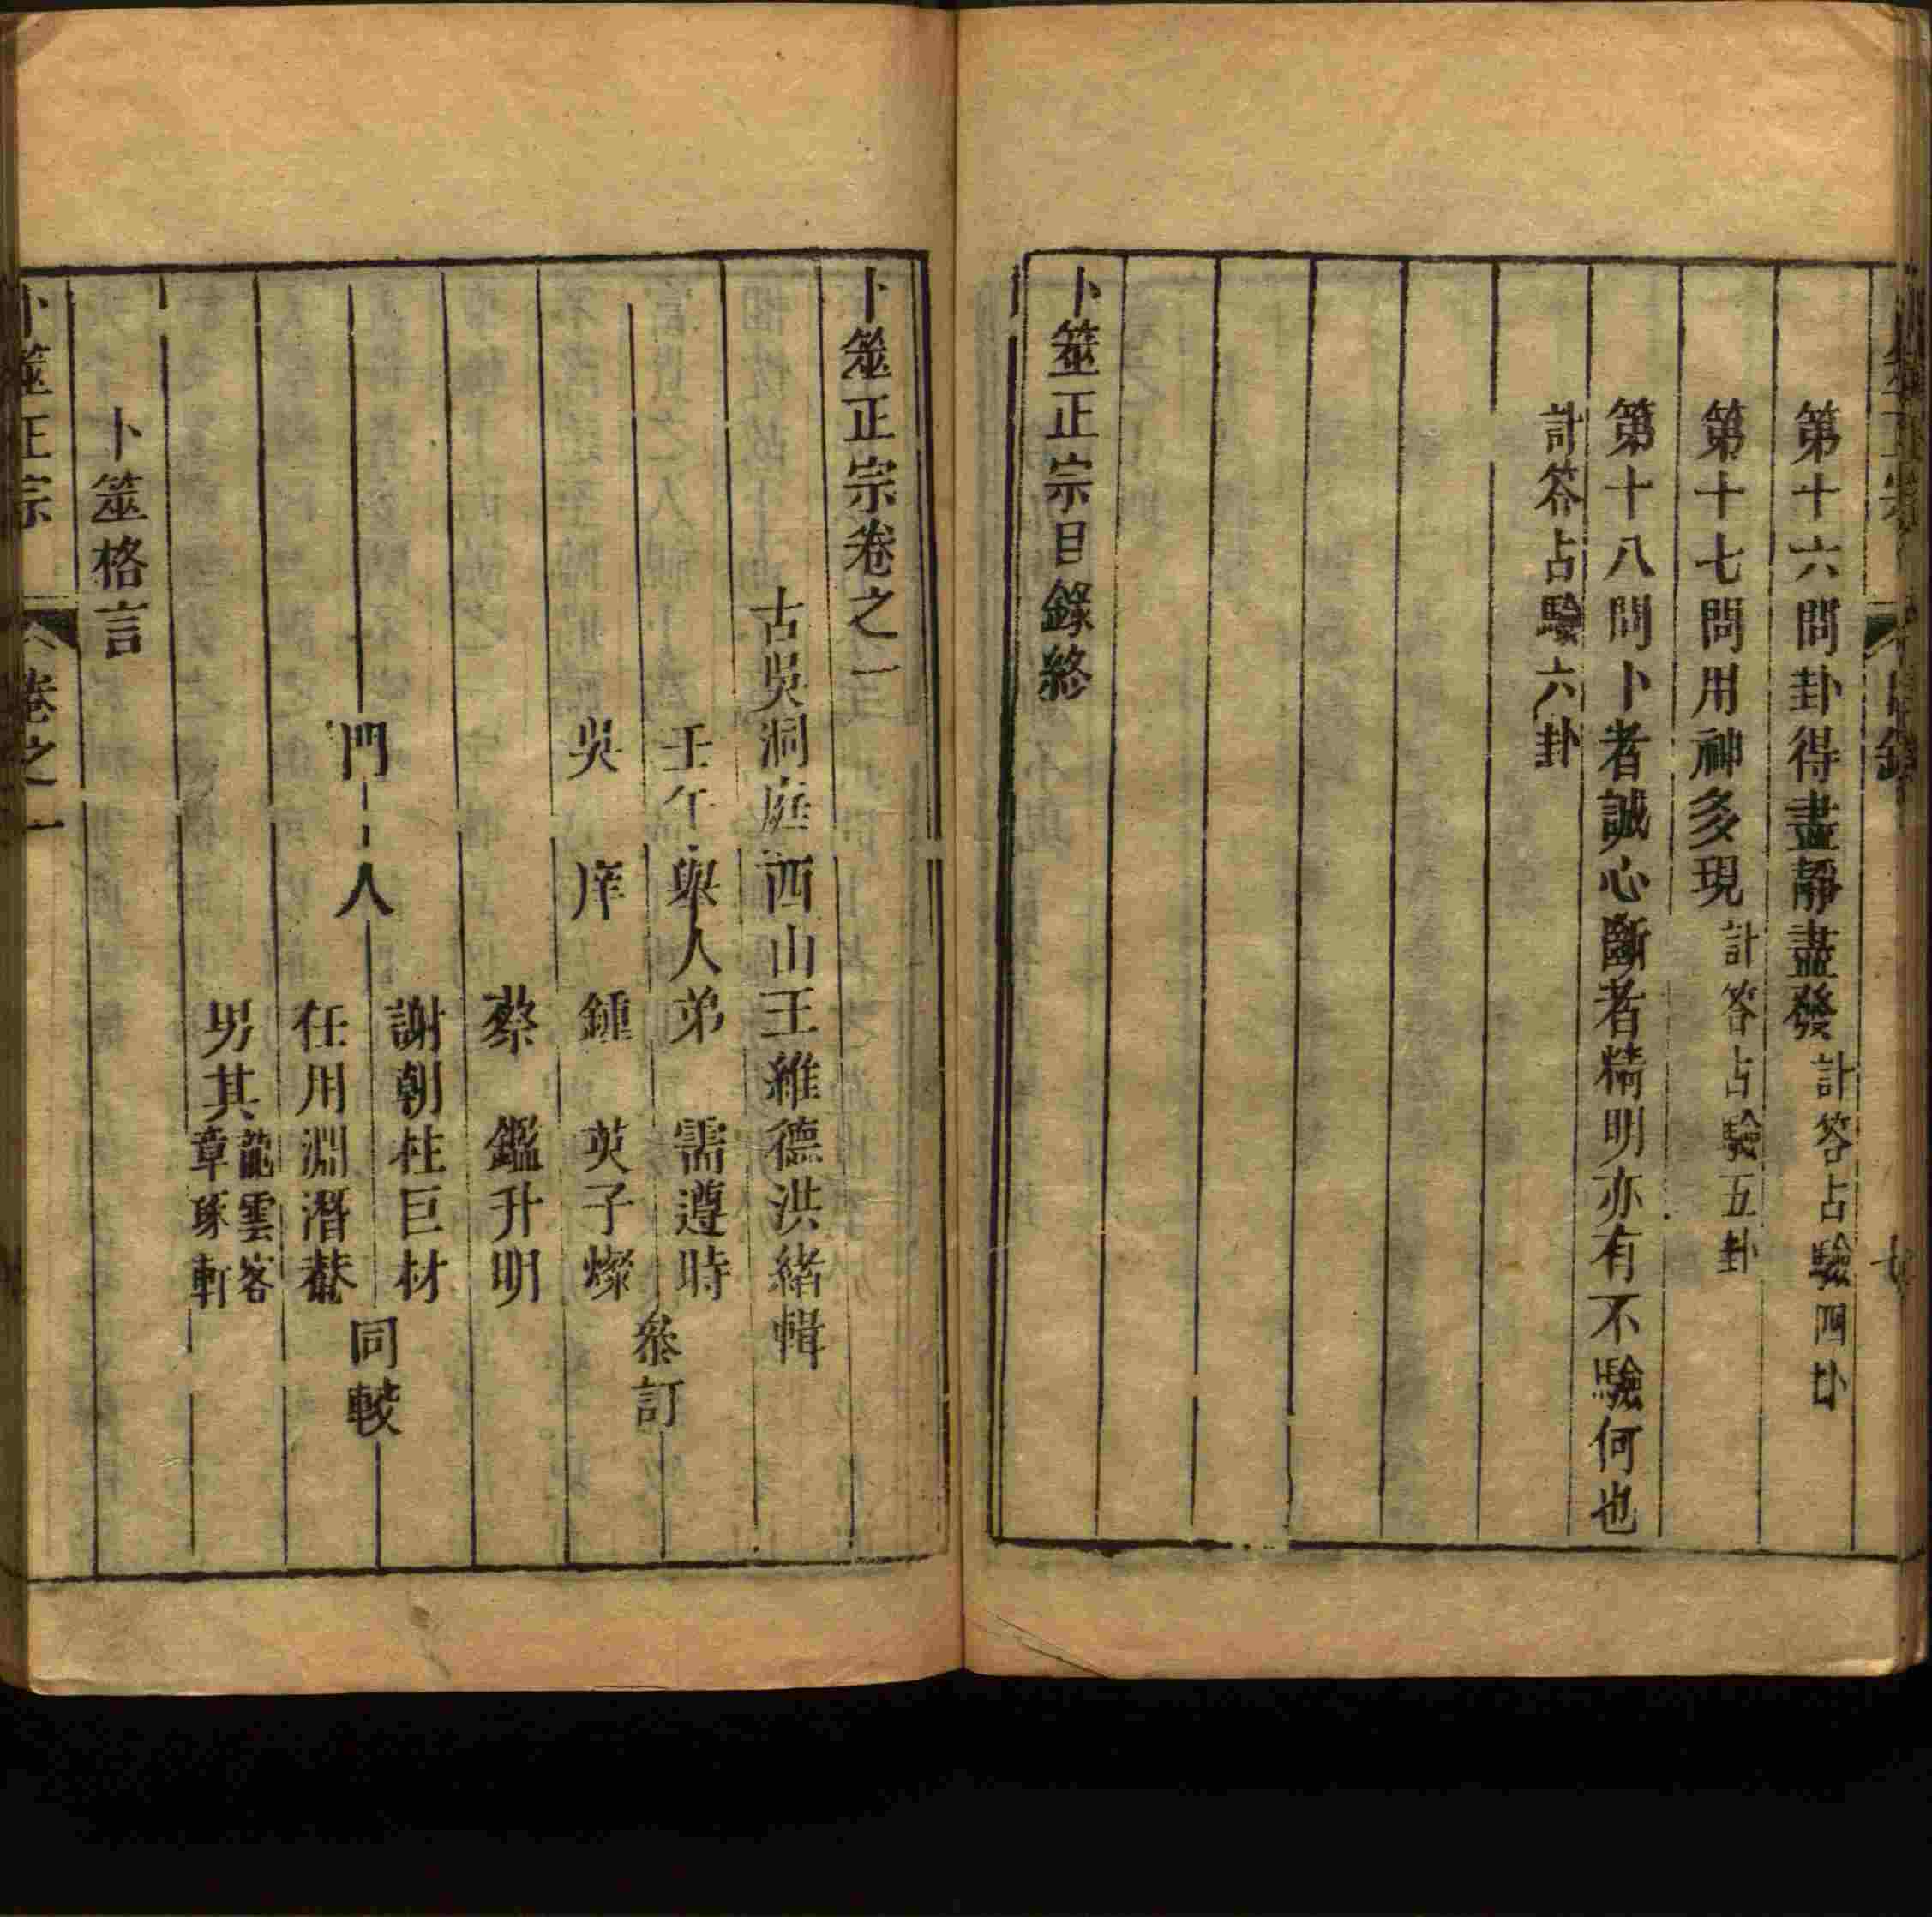 第十六問卦得盡靜盡發計答占驗四卦
第十七問用神多現計答占驗五卦
第十八問卜者誠心斷者精明亦有不驗何也
計答占驗六卦
卜筮正宗目錄終
卜筮正宗卷之一
古吳洞庭西山王維德洪緒輯
壬午舉人弟需遵時
吳庠鍾英子燦
參訂
蔡鑑升明
謝朝柱巨材
門人
同較
任用淵潛菴
男其龍雲客
章琢軒
卜筮格言
卜筮正宗 卷之一